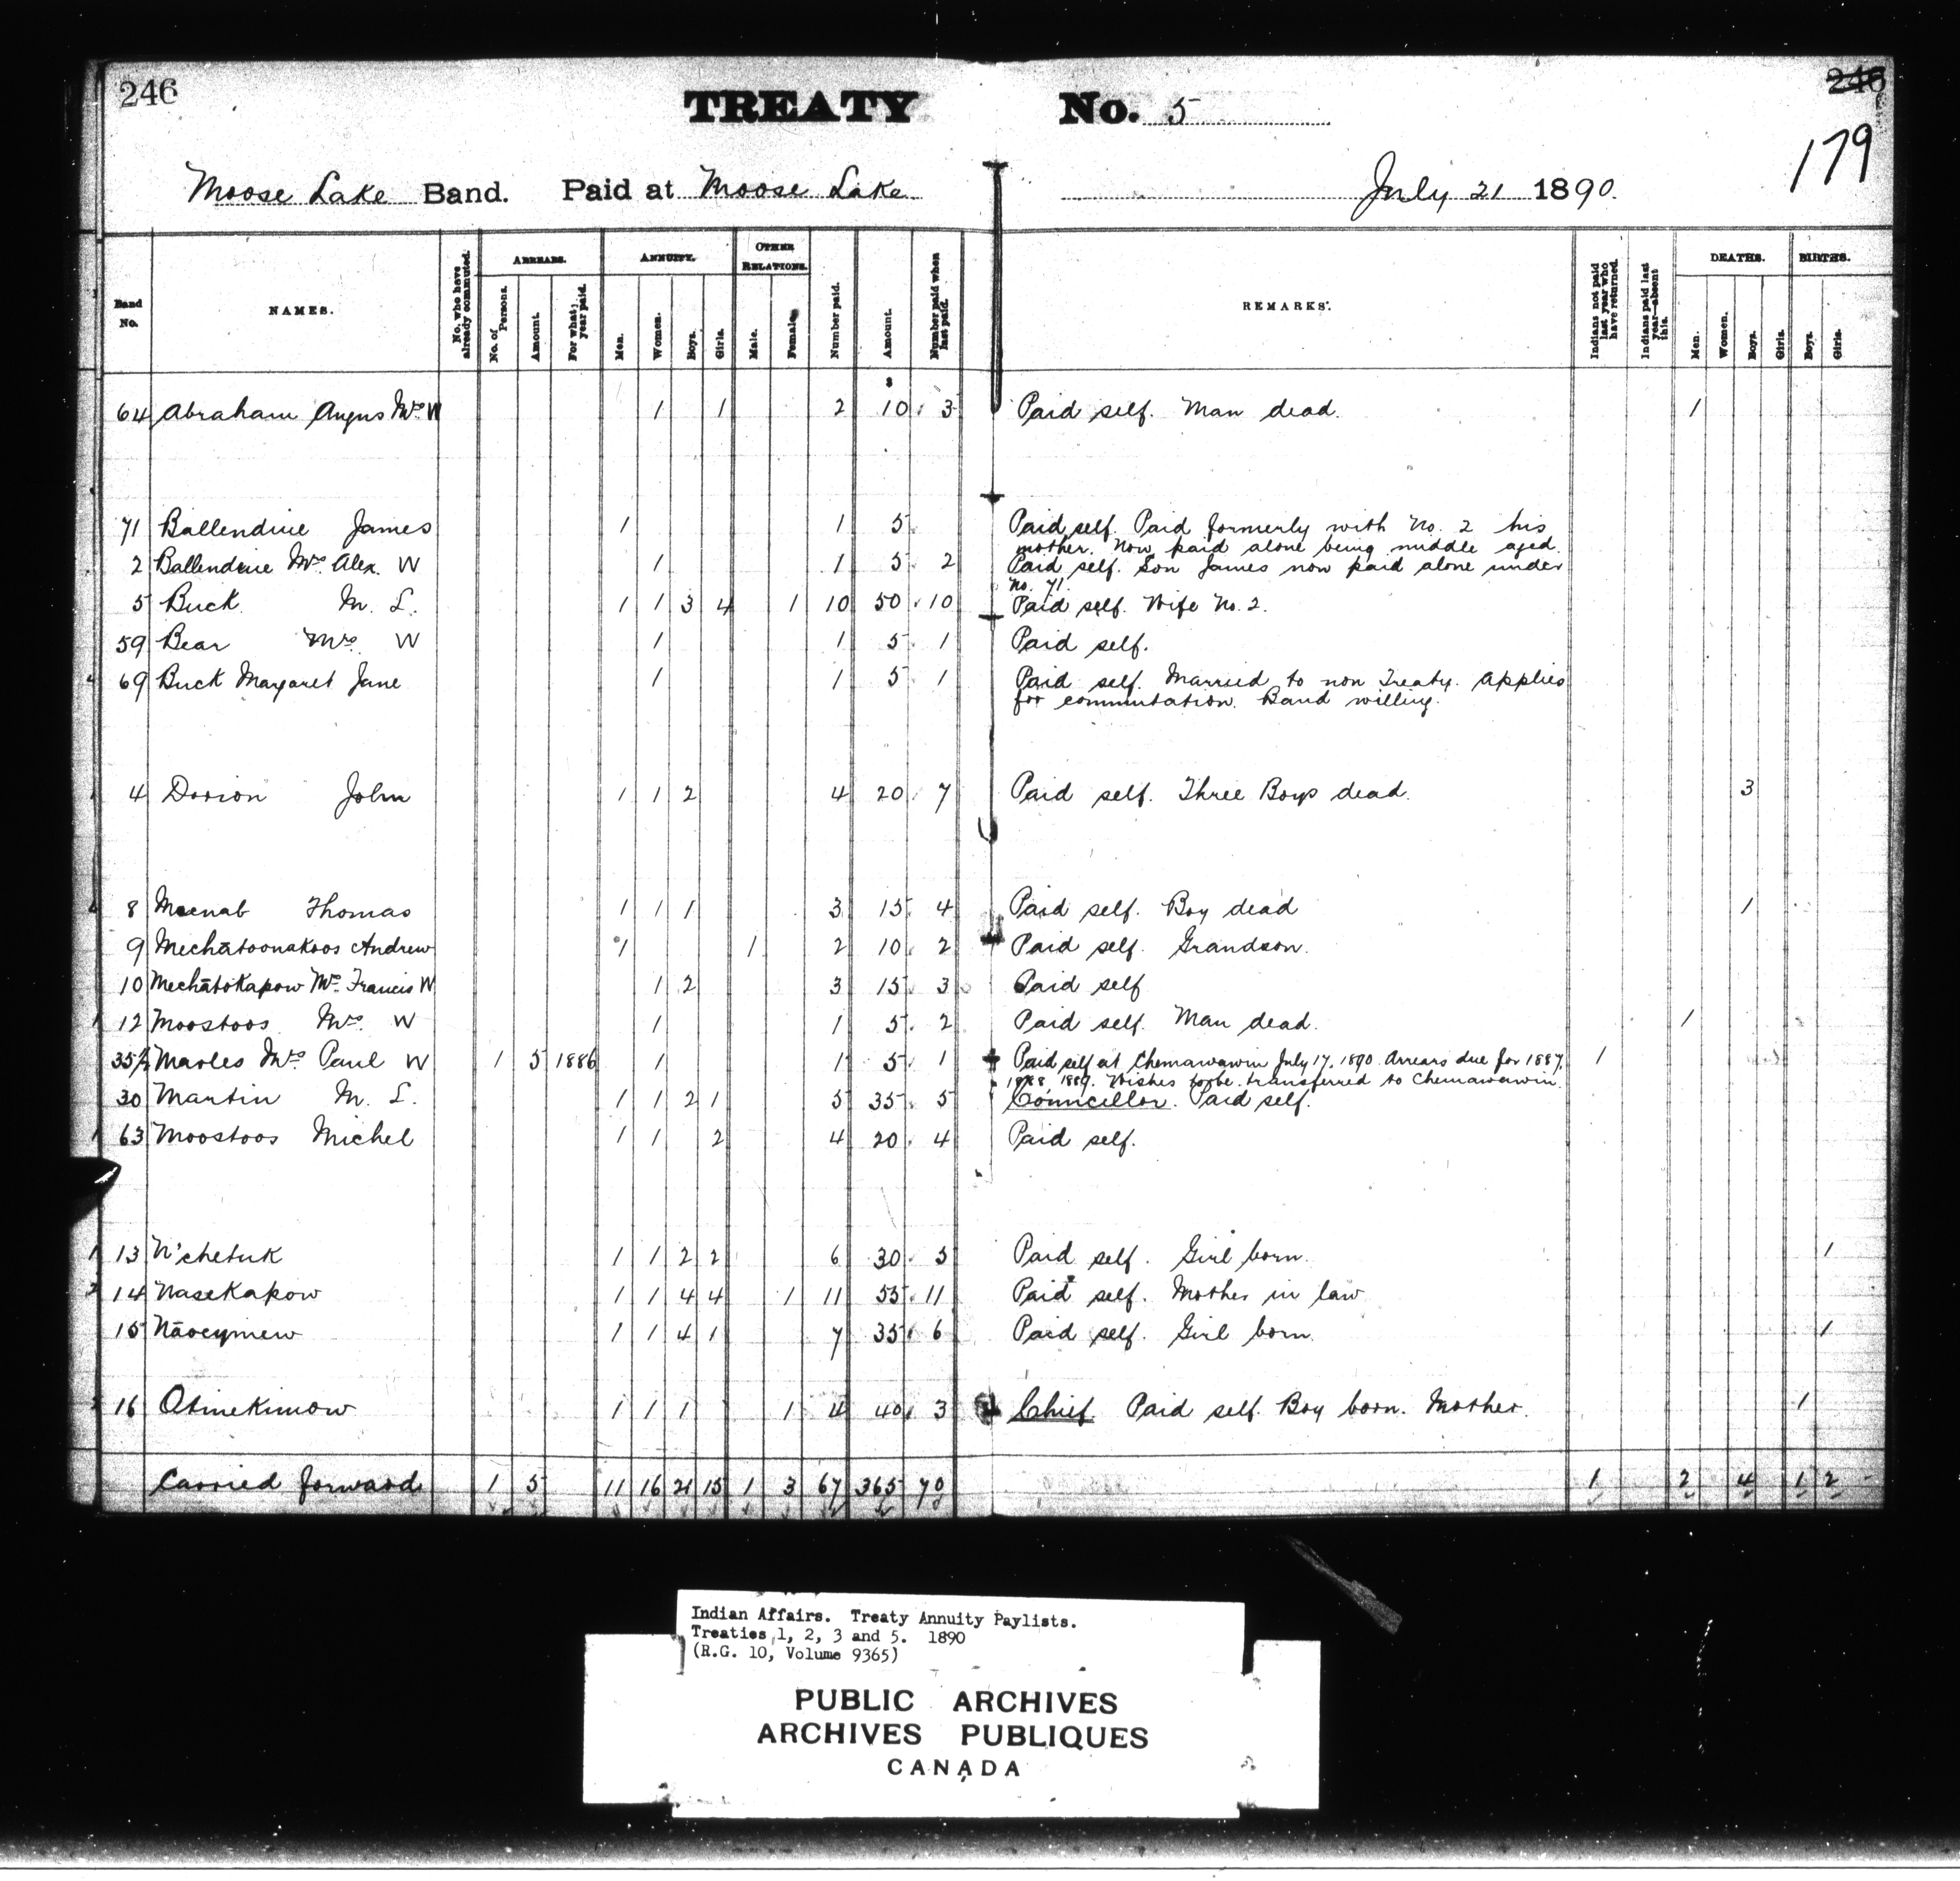 246
246
179
TREATY No. 5
Moose Lake Band. Paid at Moose Lake July 21 1890.
Band No.
NAMES.
No. who have already commuted.
ARREARS.
No. of Persons.
Amount.
For what year paid.
ANNUITY.
Men.
Women.
Boys.
Girls.
OTHER RELATIONS.
Male.
Female
Number paid.
Amount.
Number paid when last paid.
REMARKS.
Indians not paid last year who have returned.
Indians paid last year—absent this.
DEATHS.
Men.
Women.
Boys.
Girls.
BIRTHS.
Boys.
Girls.
64 Abraham Angus Mrs W 1 1 2 10 3 Paid self. Man dead. 1
71 Ballendine James 1 1 5 Paid self. Paid formerly with No. 2 his
mother. Now paid alone being middle aged.
2 Ballendine Mrs. Alex. W 1 1 5 2 Paid self. Son James now paid alone under
No. 71.
5 Buck M. L. 1 1 3 4 1 10 50 10 Paid self. Wife No. 2.
59 Bear Mrs. W 1 1 5 1 Paid self.
69 Buck Margaret Jane 1 1 5 1 Paid self. Married to non Treaty. Applies
for commutation. Band willing.
4 Dorion John 1 1 2 4 20 7 Paid self. Three Boys dead. 3
8 Meenab Thomas 1 1 1 3 15 4 Paid self. Boy dead 1
9 Mechātoonakoos Andrew 1 1 2 10 2 Paid self. Grandson.
10 Mechātokapow Mrs. Francis W 1 2 3 15 3 Paid self
12 Moostoos Mrs. W 1 1 5 2 Paid self. Man dead. 1
35½ Marles Mrs. Paul W 1 5 1886 1 1 5 1 Paid self at Chemawawin July 17, 1890. Arrears due for 1887, 1
1888, 1889. Wishes to be transferred to Chemawawin.
30 Martin M. L. 1 1 2 1 5 35 5 Councillor. Paid self.
63 Moostoos Michel 1 1 2 4 20 4 Paid self.
13 N'chetuk 1 1 2 2 6 30 5 Paid self. Girl born. 1
14 Nasekapow 1 1 4 4 1 11 55 11 Paid self. Mother in law
15 Nāoeymew 1 1 4 1 7 35 6 Paid self. Girl born. 1
16 Otinekimow 1 1 1 1 4 40 3 Chief Paid self. Boy born. Mother. 1
Carried forward 1 5 11 16 21 15 1 3 67 365 70 1 2 4 1 2
Indian Affairs. Treaty Annuity Paylists.
Treaties 1, 2, 3 and 5. 1890
(R.G. 10, Volume 9365)
PUBLIC ARCHIVES
ARCHIVES PUBLIQUES
CANADA